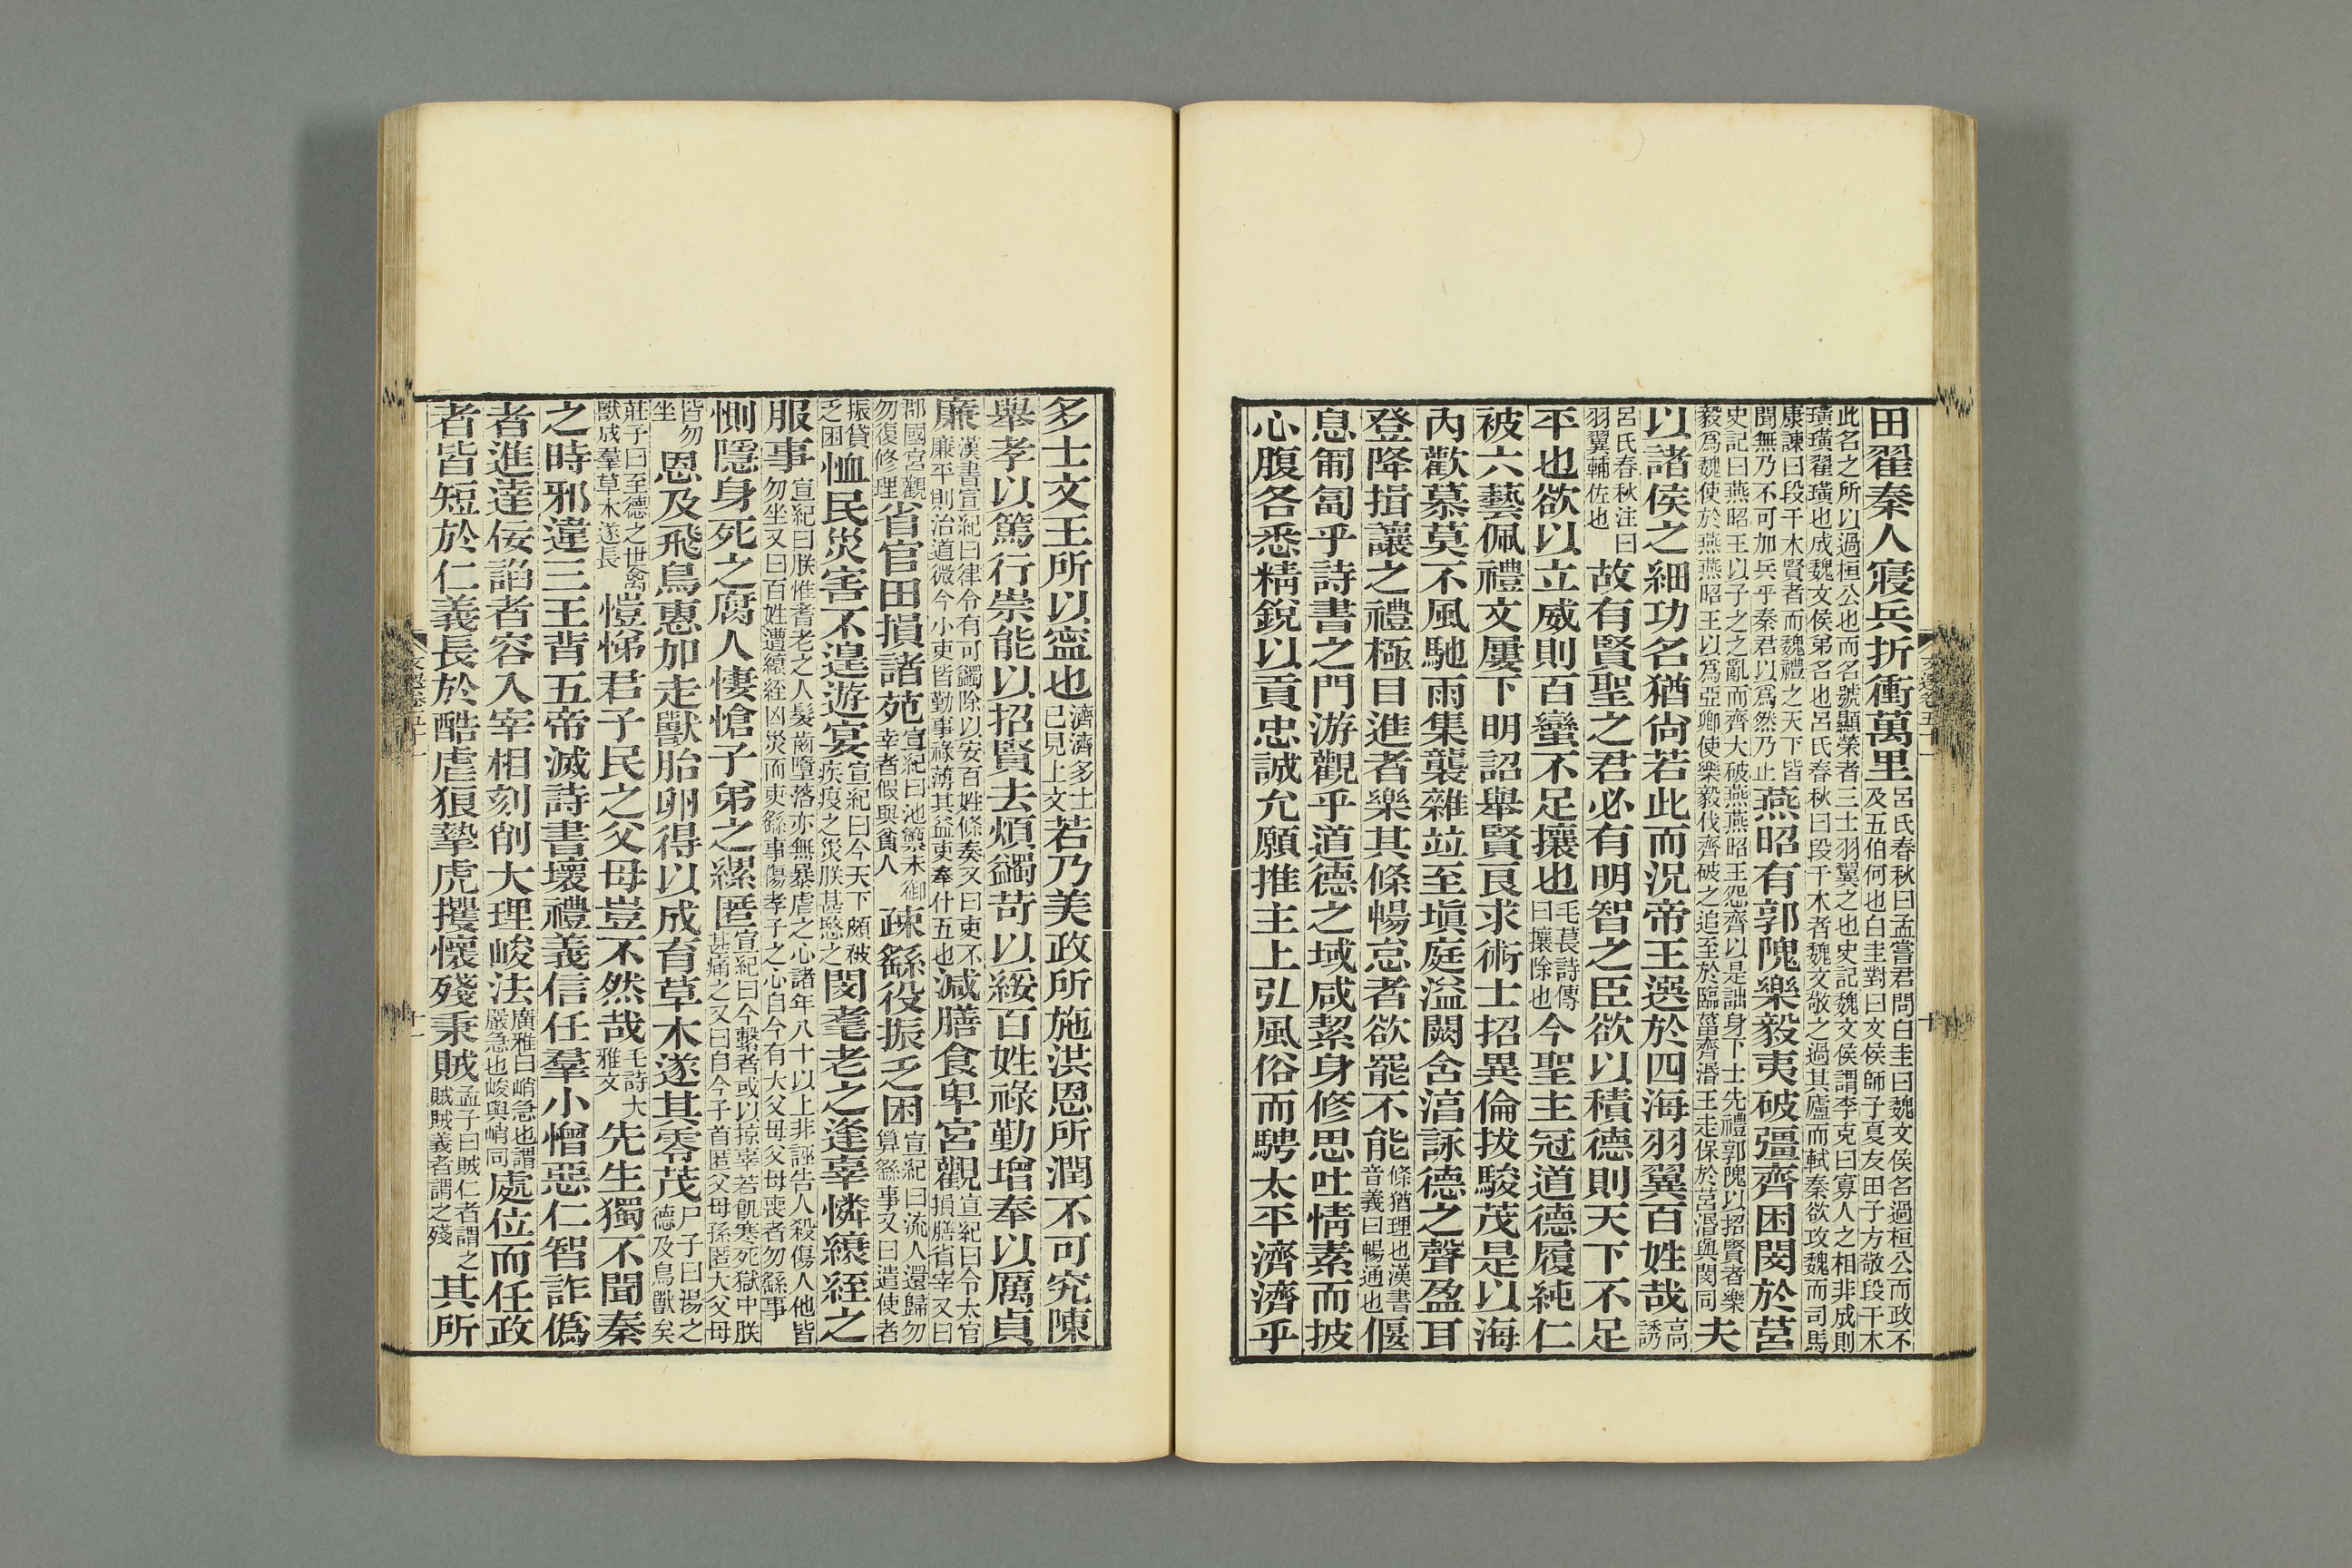 田翟秦人寢兵折衝萬里呂氏春秋曰孟嘗君問白圭曰魏文侯名過桓公而政不及五伯何也白圭對曰文侯師子夏友田子方敬段干木
此名之所以過桓公也而名號顯榮者三士羽翼之也史記魏文侯謂李克曰寡人之相非成則璜璜翟璜也成魏文侯弟名也呂氏春秋曰段干木者魏文敬之過其廬而軾秦欲攻魏而司馬
康諫曰段干木賢者而魏禮之天下皆聞無乃不可加兵乎秦君以爲然乃止燕昭有郭隗樂毅夷破彊齊困閔於莒
史記曰燕昭王以子之之亂而齊大破燕燕昭王怨齊以是詘身下士先禮郭隗以招賢者樂毅爲魏使於燕燕昭王以爲亞卿使樂毅伐齊破之追至於臨菑齊湣王走保於莒湣與閔同夫
以諸侯之細功名猶尙若此而況帝王選於四海羽翼百姓哉高誘
呂氏春秋注曰羽翼輔佐也故有賢聖之君必有明智之臣欲以積德則天下不足
平也欲以立威則百蠻不足攘也毛萇詩傳曰攘除也今聖主冠道德履純仁
被六藝佩禮文屢下明詔舉賢良求術士招異倫拔駿茂是以海
內歡慕莫不風馳雨集襲雜竝至塡庭溢闕含淯詠德之聲盈耳
登降揖讓之禮極目進者樂其條暢怠者欲罷不能條猶理也漢書音義曰暢通也偃
息匍匐乎詩書之門游觀乎道德之域咸絜身修思吐情素而披
心腹各悉精銳以貢忠誠允願推主上弘風俗而騁太平濟濟乎
文選卷五十一
十
多士文王所以寧也濟濟多士已見上文若乃美政所施洪恩所潤不可究陳
舉孝以篤行崇能以招賢去煩蠲苛以綏百姓祿勤增奉以厲貞
廉漢書宣紀曰律令有可蠲除以安百姓條奏又曰吏不廉平則治道微今小吏皆勤事祿薄其益吏奉什五也減膳食卑宮觀宣紀曰令太官損膳省宰又曰
郡國宮觀勿復修理省官田損諸苑宣紀曰池籞未御幸者假與貧人疎繇役振乏困宣紀曰流人還歸勿算繇事又曰遣使者
振貸乏困恤民災害不遑遊宴宣紀曰今天下頗被疾疫之災朕甚愍之閔耄老之逢辜憐縗絰之
服事宣紀曰朕惟耆老之人髮齒墮落亦無暴虐之心諸年八十以上非誣告人殺傷人他皆勿坐又曰百姓遭縗絰凶災而吏繇事傷孝子之心自今有大父母父母喪者勿繇事
惻隱身死之腐人悽愴子弟之縲匿宣紀曰今繫者或以掠辜若飢寒死獄中朕甚痛之又曰自今子首匿父母孫匿大父母
皆勿坐恩及飛鳥惠加走獸胎卵得以成育草木遂其零茂尸子曰湯之德及鳥獸矣
莊子曰至德之世禽獸成羣草木遂長愷悌君子民之父母豈不然哉毛詩大雅文先生獨不聞秦
之時邪違三王背五帝滅詩書壞禮義信任羣小憎惡仁智詐僞
者進達佞諂者容入宰相刻削大理峻法廣雅曰峭急也謂嚴急也峻與峭同處位而任政
者皆短於仁義長於酷虐狼摯虎攫懷殘秉賊孟子曰賊仁者謂之賊賊義者謂之殘其所
文選卷五十一
十一